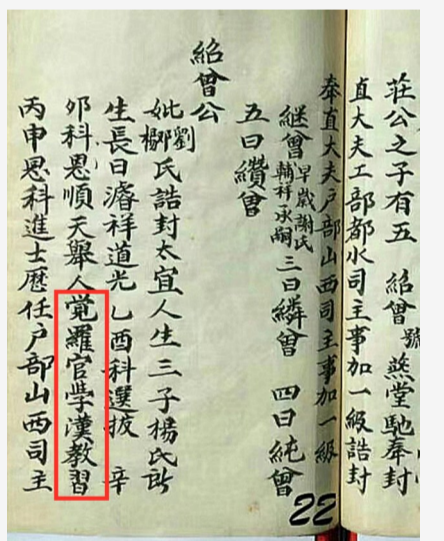 莊公之子有五 紹曾 號慈堂馳奉封
直大夫工部都水司主事加一級誥封
奉直大夫戶部山西司主事加一級
継曾 早歲謝氏輔祥承嗣 三曰繗曾 四曰純曾
五曰纘曾
紹曾公
妣劉鄉氏誥封太宜人生三子楊氏所
生長曰濬祥道光乙酉科選拔 辛
夘科恩順天舉人覚羅官学漢教習
丙申恩科進士歷任户部山西司主
22